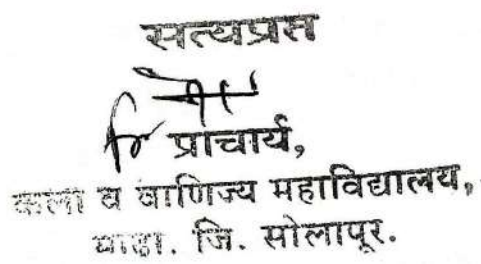 सत्यप्रत
प्राचार्य,
कला व वाणिज्य महाविद्यालय,
माढा. जि. सोलापूर.